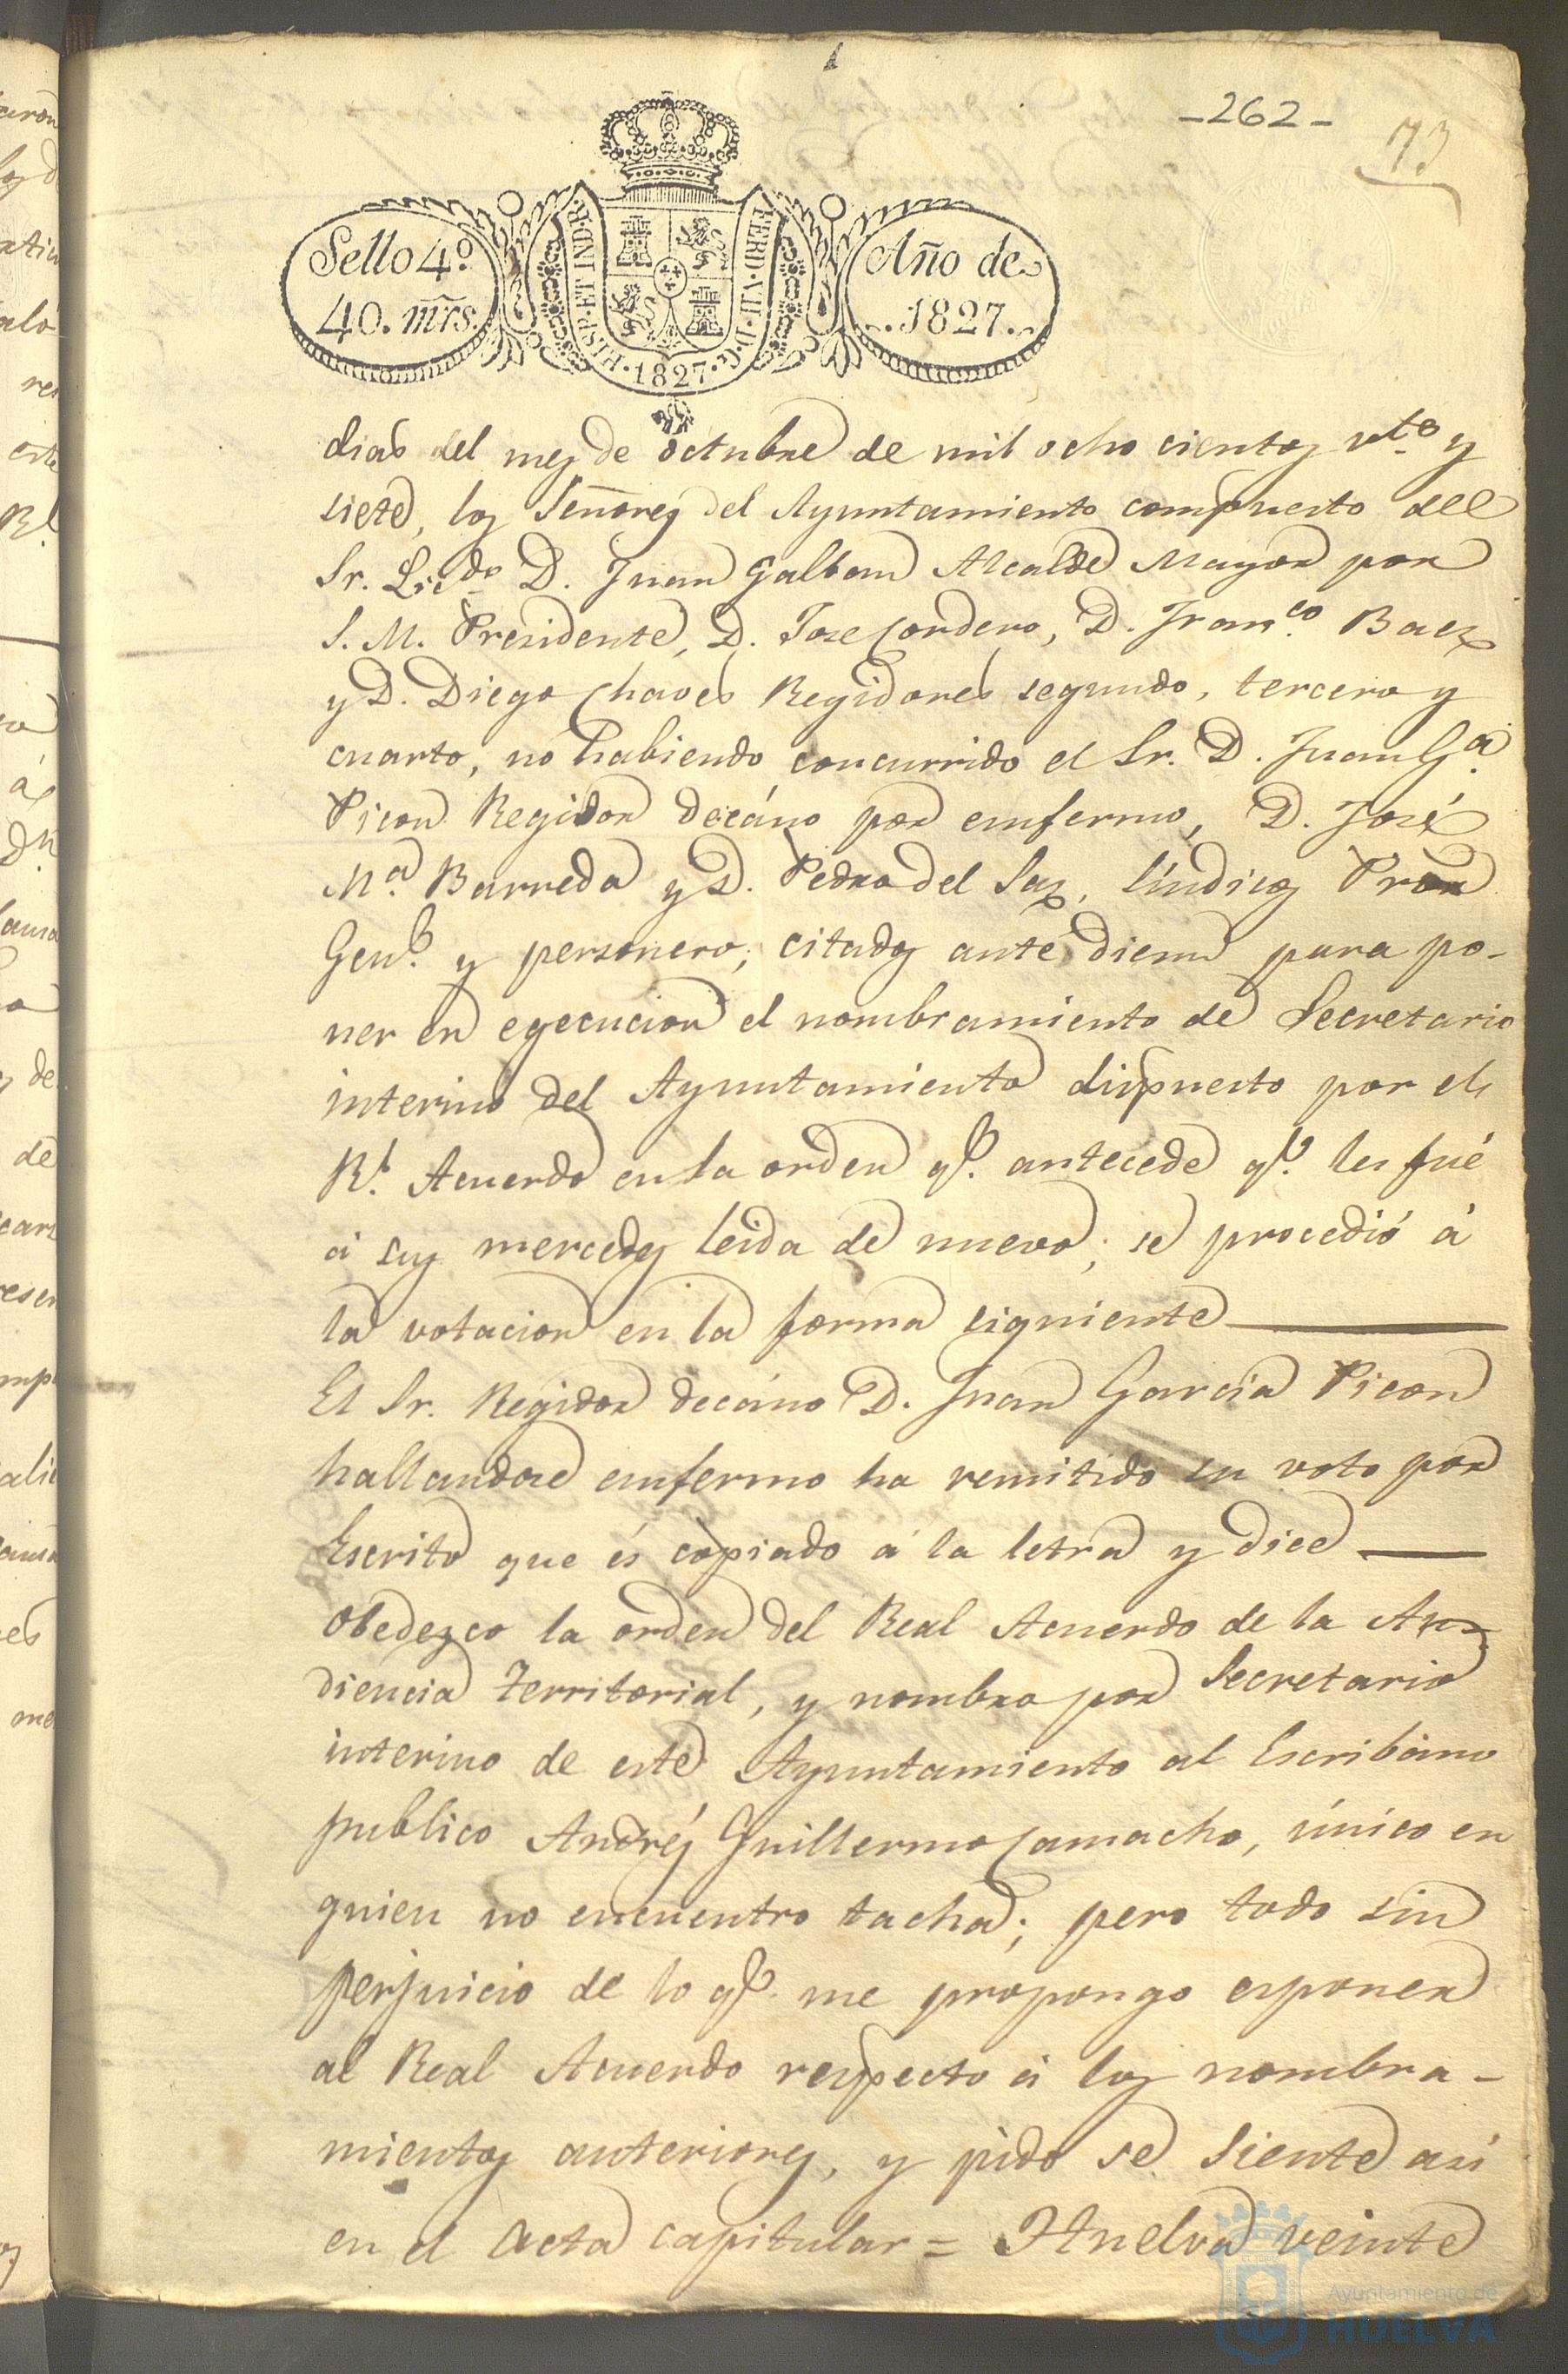 -262-
73
Sello 4º
40. mrs.
HISP. ET IND. R.
FERD. VII. D. G.
1827
Año de
1827.
dias del mes de octubre de mil ocho cientos vte. y
siete, los Señores del Ayuntamiento compuesto del
Sr. Licdo. D. Juan Galban Alcalde Mayor por
S. M. Presidente, D. Jose Cordero, D. Franco. Baez
y D. Diego Chaves Regidores segundo, tercero y
cuarto, no habiendo concurrido el Sr. D. Juan Ga.
Picon Regidor decáno por emfermo, D. José
Ma. Barreda y D. Pedro del Saz, Síndicos Pror
Genl. y personero, citados ante diem para po-
ner en egecucion el nombramiento de Secretario
interino del Ayuntamiento dispuesto por el
Rl. Acuerdo en la orden qe. antecede qe. les fué
á sus mercedes leida de nuevo; se procedió á
la votacion en la forma siguiente
El Sr. Regidor decáno D. Juan Garcia Picon
hallandose emfermo ha remitido su voto por
Escrito que és copiado á la letra y dice
Obedezco la orden del Real Acuerdo de la Au-
diencia Territorial, y nombro por Secretario
interino de este Ayuntamiento al Escribano
publico Andrés Guillermo Camacho, único en
quien no encuentro tacha; pero todo sin
perjuicio de lo qe. me propongo esponer
al Real Acuerdo respecto á los nombra-
mientos anteriores, y pido se siente asi
en el Acta capitular = Huelva veinte
Ayuntamiento de
HUELVA